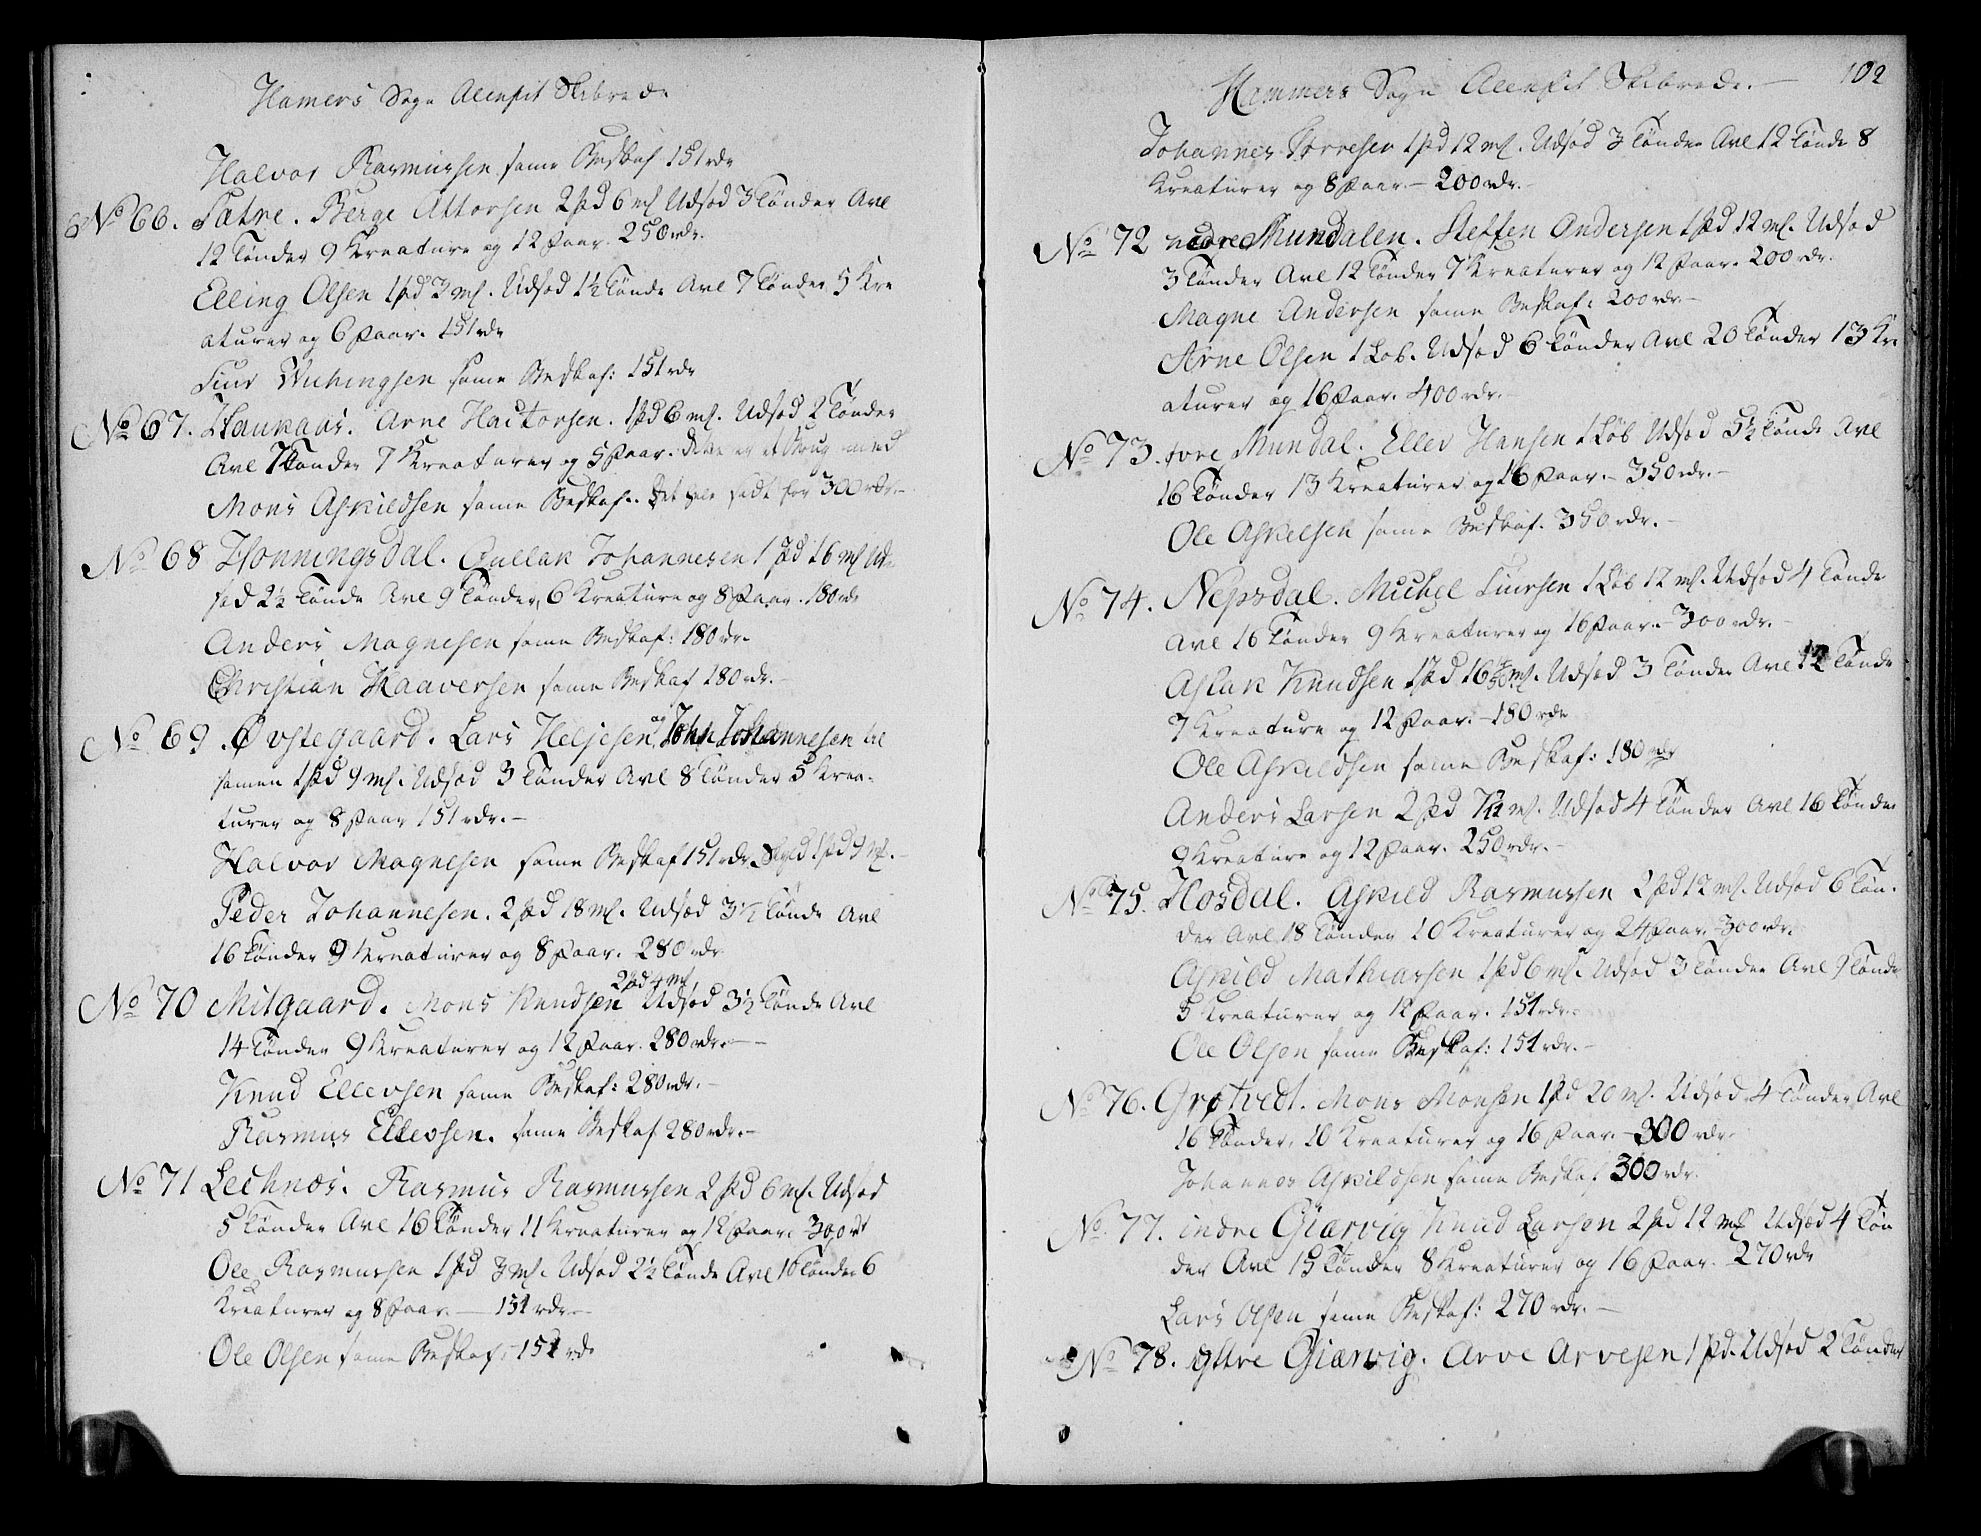 Hamers Sogn Alenfit Skibrede
Halvor Rasmussen samme Beskaf 151 rdr
No 66. Sætre. Berge Attorsen 2 pd 6 ml Udsæd 3 Tønder Avl
12 Tønder 9 Kreature og 12 Faar. 250 rdr.
Elling Olsen 1 pd 3 ml. Udsæd 1½ Tønde Avl 7 Tønder 5 Kre
aturer og 6 Faar. 151 rdr
Siur samme Beskaf: 151 rdr
No 67. Haukaas. Arne Hactorsen. 1 pd 6 ml. Udsæd 2 Tønder
Avl 7 Tønder 7 Kreaturer og 5 Faar. Dette er et Brug med
Mons Askildsen samme Beskaf. Det hele sadt for 300 rdr.-
No 68 Honningsdal. Gullak Johannesen 1 pd 16 ml Ud-
sæd 2½ Tønde Avl 9 Tønder, 6 Kreature og 8 Faar. 180 rdr
Anders Magnesen samme Beskaf: 180 rdr.
Christian Haaversen samme Beskaf 180 rdr.-
No 69. Øvstegaard. Lars Heljesen, og John Johannesen til
samen 1 pd 9 ml. Udsæd 3 Tønder Avl 8 Tønder 5 Krea-
turer og 8 Faar 151 rdr.-
Halvor Magnesen samme Beskaf 151 rdr. Skyld 1 pd 9 ml.-
Peder Johannesen. 2 pd 18 ml. Udsæd 3½ Tønde Avl
16 Tønder 9 Kreaturer og 8 Faar. 280 rdr
2 pd 4 ml
No 70 Mitgaard. Mons Knudsen Udsæd 3½ Tønde Avl
14 Tønder 9 Kreaturer og 12 Faar. 280 rdr. - -
Knud Ellevsen samme Beskaf: 280 rdr.-
Rasmus Ellevsen. samme Beskaf 280 rdr.-
No 71 Lechnæs. Rasmus Rasmussen 2 pd 6 ml. Udsæd
5 Tønder Avl 16 Tønder 11 Kreaturer og 12 Faar. 300 rd
Ole Rasmussen 1 pd 3 ml. Udsæd 2½ Tønde Avl 10 Tønder 6
Kreaturer og 8 Faar. - 151 rdr.-
Ole Olsen samme Beskaf: 151 rdr
Hammers Sogn Alenfit Skibrede.- 102
Johannes Torresen 1 pd 12 ml. Udsæd 3 Tønder Avl 12 Tønde 8
Kreaturer og 8 Faar.- 200 rdr.-
No 72 nedre Mundalen. Steffen Andersen 1 pd 12 ml. Udsæd
3 Tønder Avl 12 Tønder 7 Kreaturer og 12 Faar. 200 rdr.
Magne Andersen samme Beskaf: 200 rdr.-
Arne Olsen 1 Løb. Udsæd 6 Tønder Avl 20 Tønder 13 Kre
aturer og 16 Faar. 400 rdr.-
No 73. øvre Mundal. Ellev Hansen 1 Løb Udsæd 5½ Tønde Avl
16 Tønder 13 Kreaturer og 16 Faar.- 350 rdr.-
Ole Askelsen samme Beskaf. 350 rdr.-
No 74. Nepsdal. Michel Siursen 1 Løb 12 ml. Udsæd 4 Tønde
Avl 16 Tønder 9 Kreaturer og 16 Faar.- 300 rdr.-
Aslak Knudsen 1 pd 16 ml. Udsæd 3 Tønder Avl 12 Tønde
7 Kreature og 12 Faar.- 180 rdr
Ole Askildsen samme Beskaf: 180 rdr
Anders Larsen 2 pd ml. Udsæd 4 Tønder Avl 16 Tønder
9 Kreature og 12 Faar. 250 rdr.-
No 75. Hosdal. Askild Rasmussen 2 pd 12 ml. Udsæd 6 Tøn-
der Avl 18 Tønder 10 Kreaturer og 24 Faar. 300 rdr.
Askild Mathiassen 1 pd 6 ml. Udsæd 3 Tønder Avl 9 Tønde
5 Kreaturer og 12 Faar. 151 rdr.
Ole Olsen samme Beskaf: 151 rdr.-
No 76. Grøtvedt. Mons Monsen 1 pd 20 ml. Udsæd 4 Tønder Avl
16 Tønder, 10 Kreaturer og 16 Faar.- 300 rdr.
Johannes Askildsen samme Beskaf 300 rdr.
No 77. indre Giærvig Knud Larsen 2 pd 12 ml Udsæd 4 Tøn
der Avl 15 Tønder 8 Kreaturer og 16 Faar. 270 rdr
Lars Olsen samme Beskaf: 270 rdr.-
No 78. yttre Giærvig. Arve Arvesen 1 pd. Udsæd 2 Tønder